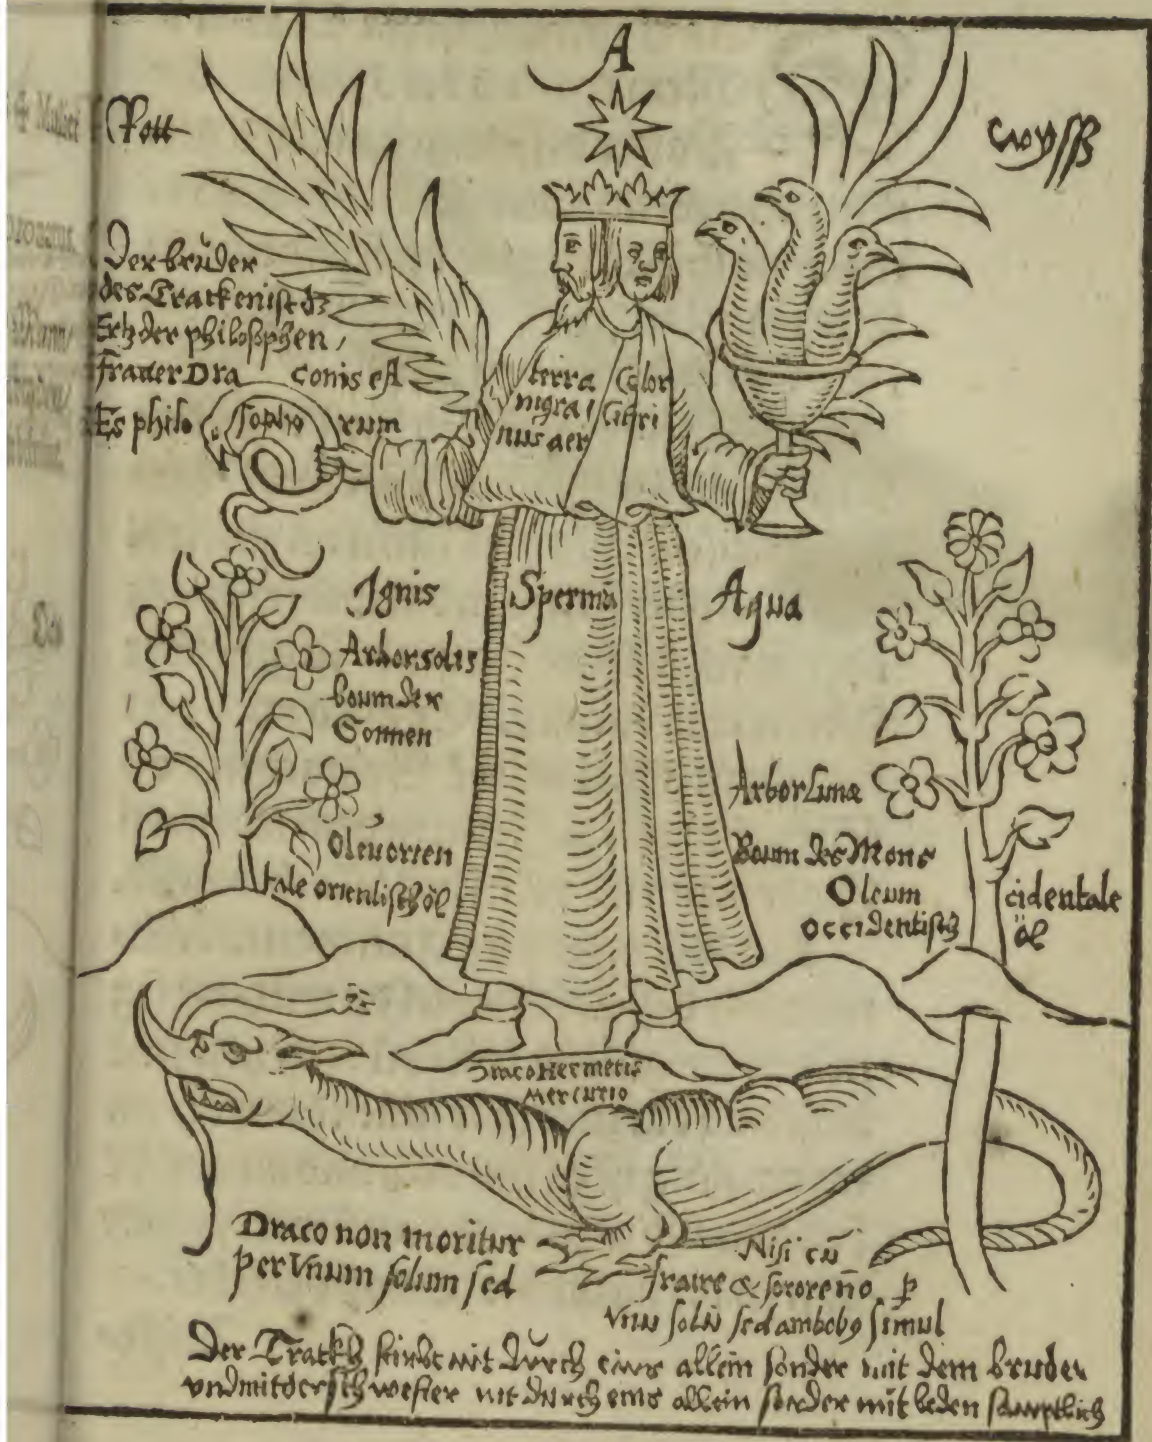 A
Rott
wyss
Der brůder
des Tracken ist dz
Ertz der philosophen /
frater Dra conis est
Es philo sopho rum
terra
nigra /
nus aer
Color
Citri
Ignis
Sperma
Aqua
Arbor solis
boum der
Sonnen
Oleu orien
tale orientisch öl
Arbor Lunæ
Boum des Mons
Oleum cidentale
occidentisch öl
Draco Hermetis
Mercurio
Draco non moritur
per vnum solum sed
Nisi cū
fratre & sorore nō p
vnū solū sed ambobꝰ simul
Der Trackh stirbt nit durch eins allein sonder mit dem bruder
vnd mit der schwester nit durch eins allein sonder mit beden samptlich